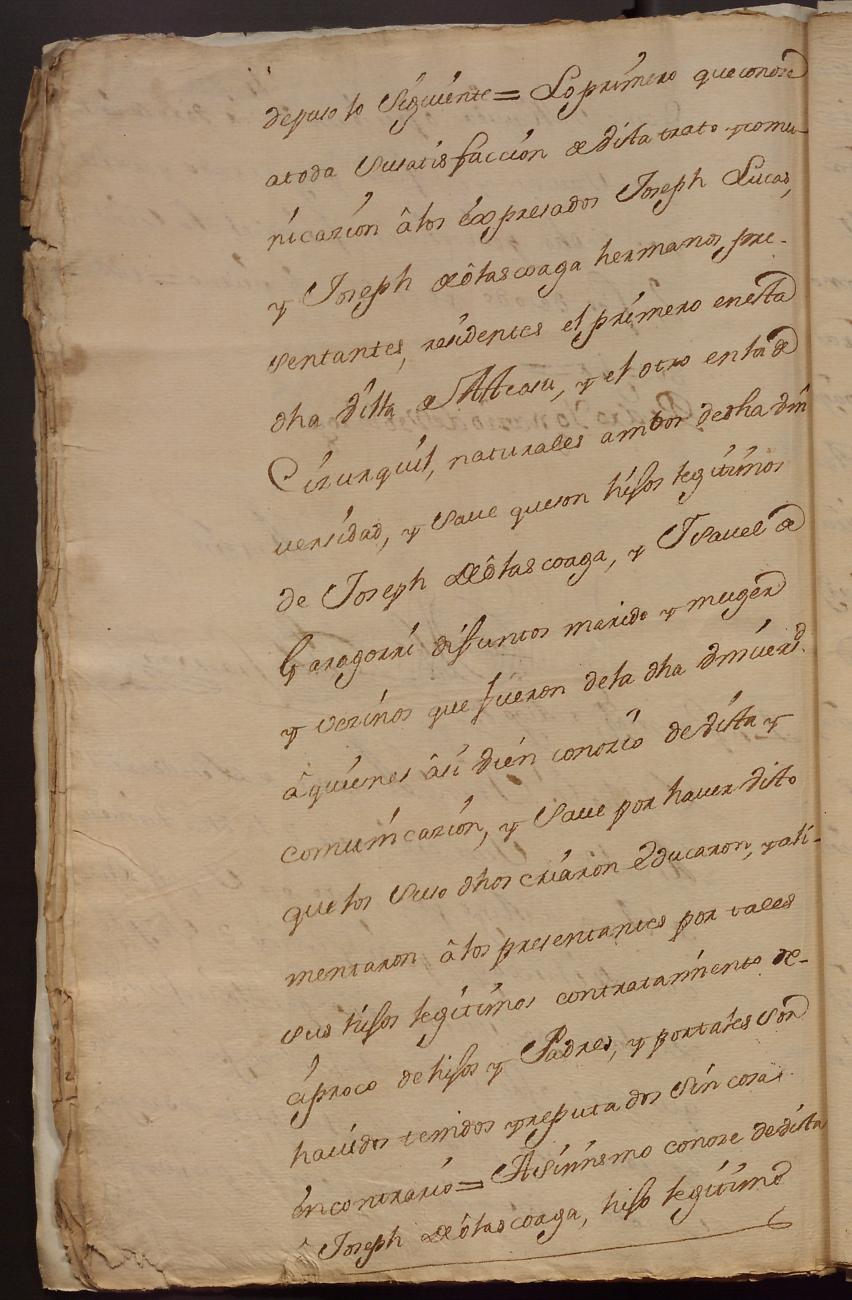 depuso lo Siguiente = Lo primero que conoze
a toda Susatisfaccion de Vista trato y comu-
nicazion â los éxpresados Joseph Lucas,
y Joseph de ôlascoaga hermanos, pre-
sentantes, residentes el primero enesta
dha Villa de, y el otro enla de
Cizurquil, naturales ambos desha Vni
uersidad, y Saue queson hijos legitimos
de Joseph de ôlascoaga, y Isauel de
Garagorri difuntos marido y muger
y vezinos que fueron dela dha Vniuersd.
â quienes âsi vien conozio de Vista y
comunicazion, y Saue por hauer visto
que los Suso dhos criaron educaron, y ali-
mentaron â los presentantes por tales
sus hijos legitimos contratamiento re-
ciproco de hijos y Padres, y portales Son
hauidos tenidos y reputados Sin cosa
én contrario = Asimismo conoze de vista
â Joseph de ôlascoaga, hijo legitimo